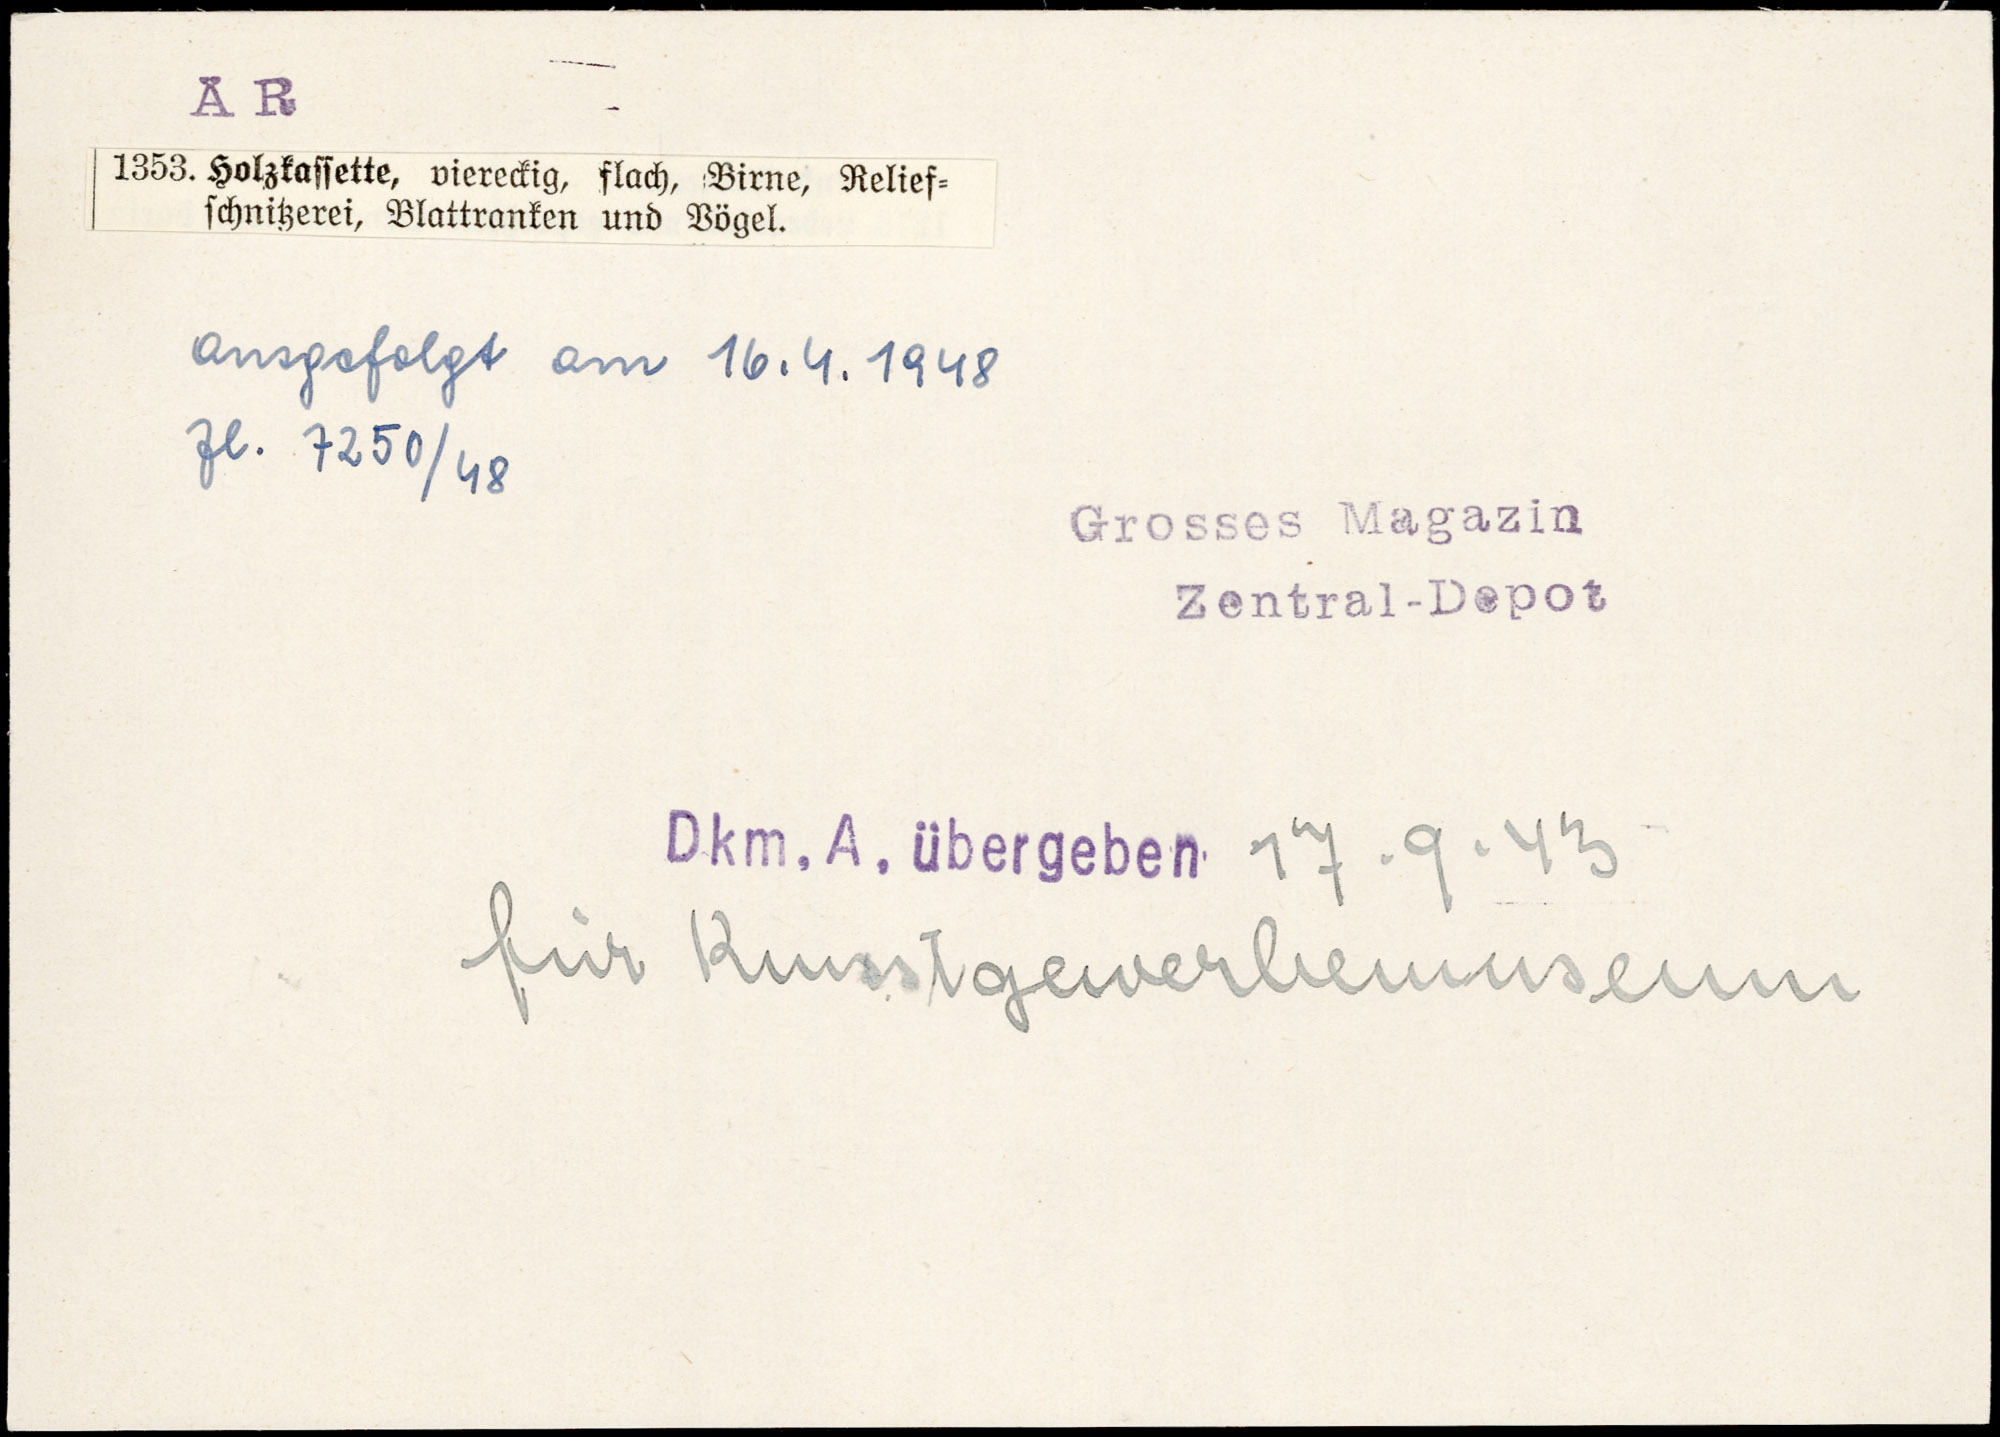 AR
1353. Holzkassette, viereckig, flach, Birne, Relief-
schnitzerei, Blattranken und Vögel.
ausgefolgt am 16.4.1948
Zl. 7250/48
Grosses Magazin
Zentral-Depot
Dkm. A. übergeben 17.9.43
für Kunstgewerbemuseum